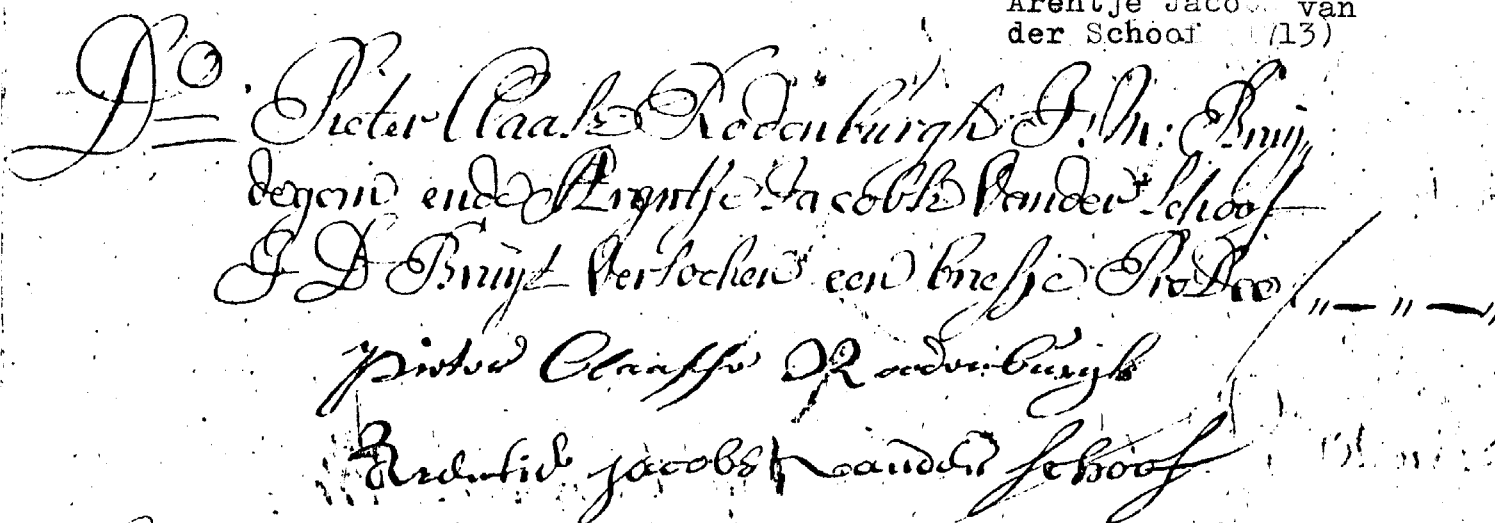 Arentje Jacob van
der Schoof 13)
Do Pieter Claasz Rodenburgh J: M: Bruij,,
degom ende Arentje Jacobsz Vander Schoof
J D Bruijt versochen een briefje ProDeo / ,, — ,, — ,,
pieter Claasse Roodenburgh
Arentie jacobs vanden schoof